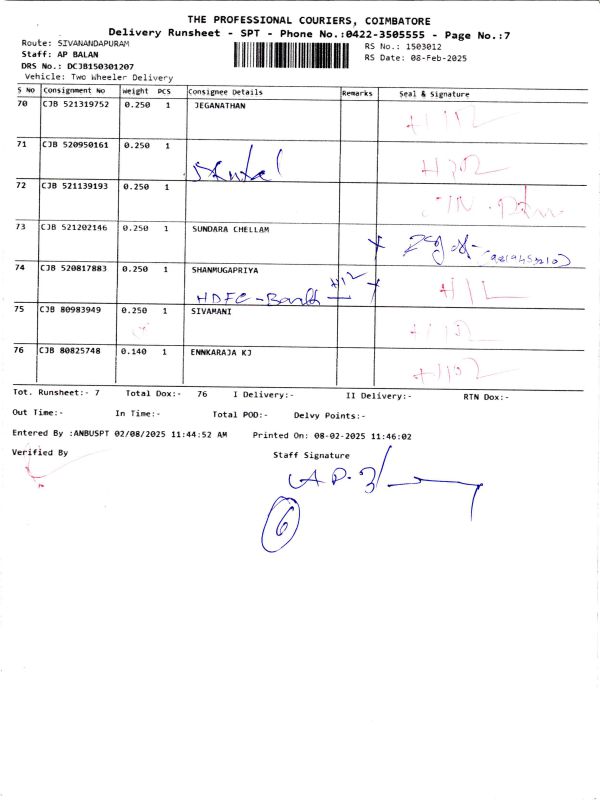 THE PROFESSIONAL COURIERS, COIMBATORE
Delivery Runsheet - SPT - Phone No.:0422-3505555 - Page No.:7
Route: SIVANANDAPURAM
RS No.: 1503012
Staff: AP BALAN
RS Date: 08-Feb-2025
DRS No.: DCJB150301207
Vehicle: Two Wheeler Delivery
S No Consignment No Weight PCS Consignee Details Remarks Seal & Signature
70 CJB 521319752 0.250 1 JEGANATHAN
71 CJB 520950161 0.250 1
72 CJB 521139193 0.250 1
73 CJB 521202146 0.250 1 SUNDARA CHELLAM
74 CJB 520817883 0.250 1 SHANMUGAPRIYA
HDFC - Bank
75 CJB 80983949 0.250 1 SIVAMANI
76 CJB 80825748 0.140 1 ENNKARAJA KJ
Tot. Runsheet:- 7 Total Dox:- 76 I Delivery:- II Delivery:- RTN Dox:-
Out Time:- In Time:- Total POD:- Delvy Points:-
Entered By :ANBUSPT 02/08/2025 11:44:52 AM Printed On: 08-02-2025 11:46:02
Verified By Staff Signature
6